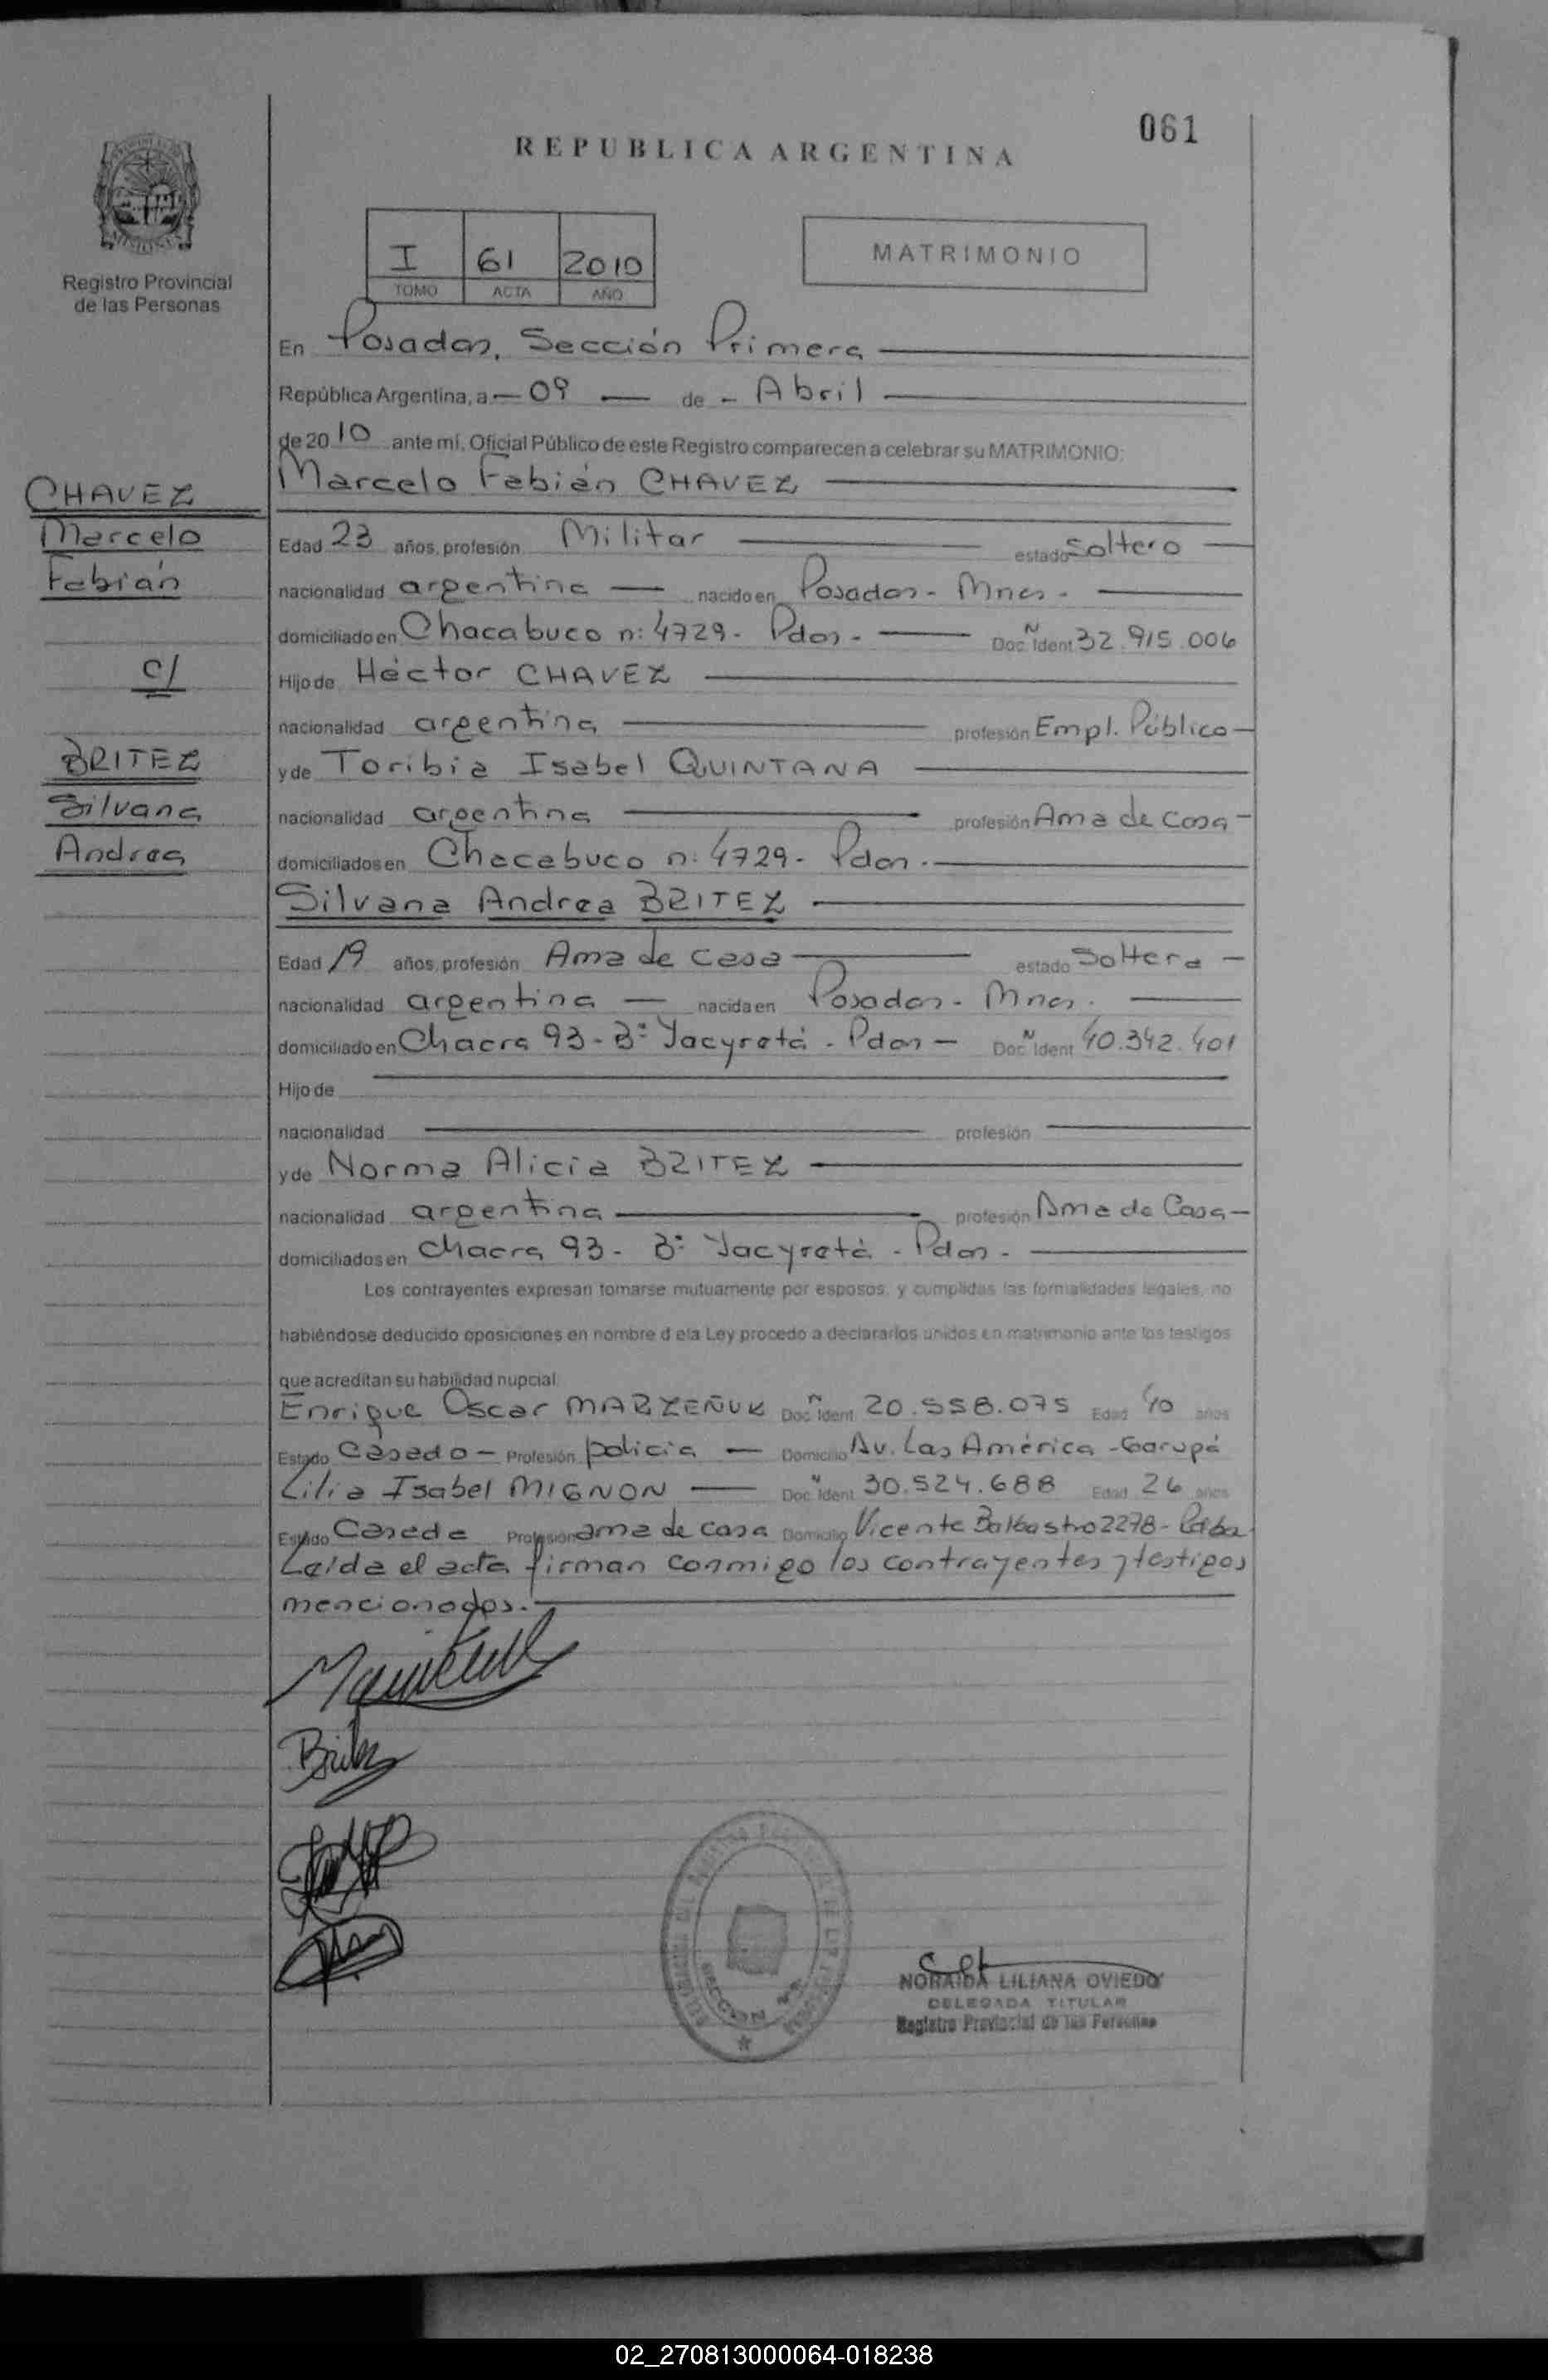 061
REPUBLICA ARGENTINA
MISIONES
Registro Provincial
de las Personas
I 61 2010
TOMO ACTA AÑO
MATRIMONIO
En Posadas, Sección Primera
República Argentina, a 09 de Abril
de 2010 ante mí, Oficial Público de este Registro comparecen a celebrar su MATRIMONIO:
Marcelo Fabián CHAVEZ
CHAVEZ
Marcelo
Fabián
c/
BRITEZ
Silvana
Andrea
Edad 23 años, profesión Militar estado Soltero
nacionalidad argentina nacido en Posadas - Mnes.
domiciliado en Chacabuco n: 4729 - Pdas - Doc. Ident N 32.915.006
Hijo de Héctor CHAVEZ
nacionalidad argentina profesión Empl. Público
y de Toribia Isabel QUINTANA
nacionalidad argentina profesión Ama de Casa
domiciliados en Chacabuco n: 4729 - Pdas.
Silvana Andrea BRITEZ
Edad 19 años, profesión Ama de Casa estado Soltera
nacionalidad argentina nacida en Posadas - Mnes.
domiciliado en Chacra 93 - B: Yacyretá - Pdas - Doc. Ident N 40.342.401
Hijo de
nacionalidad profesión
y de Norma Alicia BRITEZ
nacionalidad argentina profesión Ama de Casa
domiciliados en Chacra 93 - B: Yacyretá - Pdas -
Los contrayentes expresan tomarse mutuamente por esposos, y cumplidas las formalidades legales, no
habiéndose deducido oposiciones en nombre d ela Ley procedo a declararlos unidos en matrimonio ante los testigos
que acreditan su habilidad nupcial.
Enrique Oscar MARZEÑUK Doc. Ident. N 20.558.075 Edad 40 años
Estado Casado - Profesión policia Domicilio Av. Las América - Garupá
Lilia Isabel MIGNON Doc. Ident. N 30.524.688 Edad 26 años
Estado Casada Profesión ama de casa Domicilio Vicente Balbastro 2278 -
Leída el acta firman conmigo los contrayentes y testigos
mencionados.
Britez
SECCION
NORAIDA LILIANA OVIEDO
DELEGADA TITULAR
Registro Provincial de las Personas
02_270813000064-018238